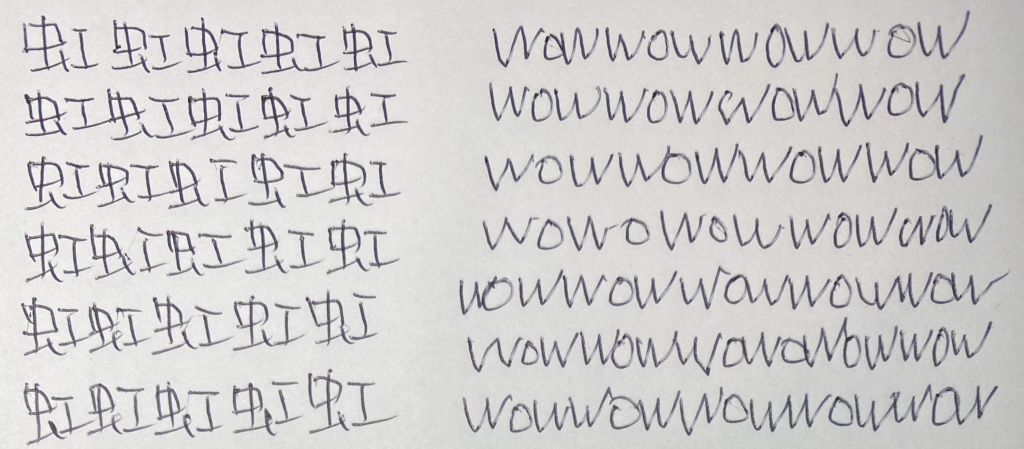 虹虹虹虹虹
虹虹虹虹虹
虹虹虹虹虹
虹虹虹虹虹
虹虹虹虹虹
虹虹虹虹虹
wowwowwowwow
wowwowwowwow
wowwowwowwow
wowowowwowwow
wowwowwowwowwow
wowwowwowowowwow
wowwowwowwowwow